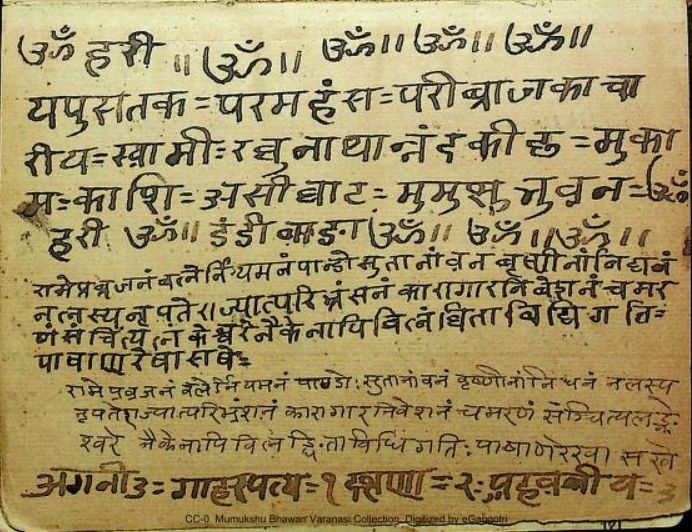 ॐ हरी ॥ ॐ॥ ॐ॥ ॐ॥ ॐ॥
यपुसतक=परमहंस=परीब्राजकाचा
रीय=स्वामी=रघुनाथान्नंदकी हु=मुका
म=काशि=असीघाट=मुमुक्षु भुवन=ॐ
हरी ॐ॥ डंडीबाडा ॐ॥ ॐ॥ ॐ॥
रामेप्रब्रजनंबलेर्नियमनंपान्डोसुतानांवनं बृष्णीनांनिधनं
नलस्य नृपतेराज्यात्परिभ्रंसनं कारागारनिवेशनं च मर
णंसंचित्य लंकेश्वरेनैकेनापि विलंघिता विधिगति=
पाषाणरेखासखे=
रामे प्रव्रजनं वलेर्नियमनं पाण्डोःसुतानांवनं वृष्णीनांनिधनं नलस्य
नृपतेराज्यात्परिभ्रंशनं कारागारनिवेशनं च मरणं संञ्चित्यलङ्के
श्वरे नैकेनापि विलङ्घिता विधिगतिः पाषाणरेखा सखे
अगनी३=गाहस्पत्य=१ दक्षणा=२
CC-0 Mumukshu Bhawan Varanasi Collection. Digitized by eGangotri